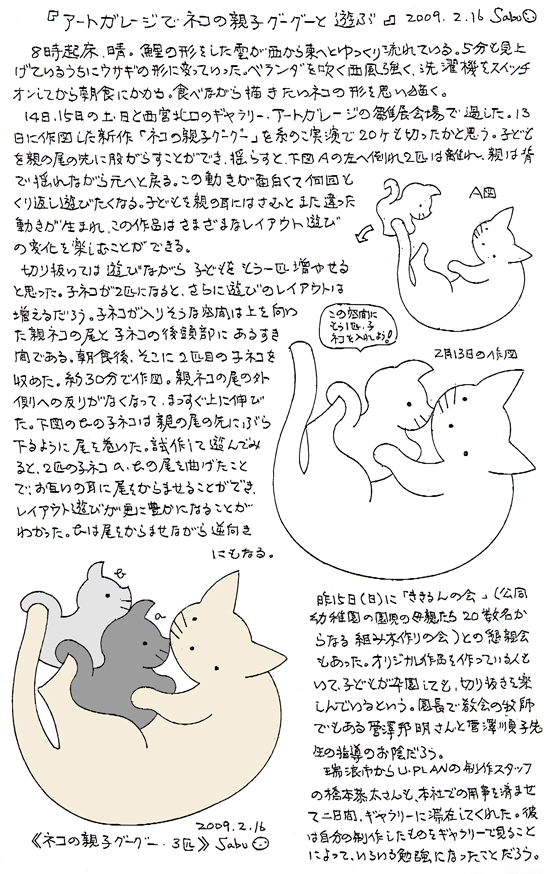 『アートガレージで ネコの親子グーグーと 遊ぶ』 2009.2.16 Sabu
8時起床、晴。鯉の形をした雲が西から東へとゆっくり流れている。5分も見上
げているうちにウサギの形に変っていった。ベランダを吹く西風強く、洗濯機をスイッチ
オンしてから朝食にかかる。食べながら描きたいネコの形を思い描く。
14日、15日の土、日と西宮北口のギャラリー・アートガレージの雛展会場で過した。13
日に作図した新作「ネコの親子グーグー」を糸のこ実演で20ケも切ったかと思う。子ども
を親の尾の先に股がらすことができ、揺らすと、下図Aの左へ倒れ2匹は離れ、親は背
で揺れながら元へと戻る。この動きが面白くて何回と
くり返し遊びたくなる。子どもを親の耳にはさむとまた違った
動きが生まれ、この作品はさまざまなレイアウト遊び
の変化を楽しむことができる。
切り抜いては遊びながら子どもをもう一匹増やせる
と思った。子ネコが2匹になると、さらに遊びのレイアウトは
増えるだろう。子ネコが入りそうな空間は上を向い
た親ネコの尾と子ネコの後頭部にあるすき
間である。朝食後、そこに2匹目の子ネコを
収めた。約30分で作図。親ネコの尾の外
側への反りがなくなって、まっすぐ上に伸び
た。下図のbの子ネコは親の尾の先にぶら
下るように尾を巻いた。試作して遊んでみ
ると、2匹の子ネコa、bの尾を曲げたこと
で、お互いの耳に尾をからませることができ、
レイアウト遊びが更に豊かになることが
わかった。bは尾をからませながら逆向き
にもなる。
A図
この空間に
もう1匹、子
ネコを入れよう!
2月13日の作図
b
a
2009.2.16
《ネコの親子グーグー・3匹》 Sabu
昨15日(日)に「ききるんの会」(公同
幼稚園の園児の母親たち20数名か
らなる組み木作りの会)との懇親会
もあった。オリジナル作品を作っている人も
いて、子どもが卒園しても、切り抜きを楽
しんでいるという。園長で教会の牧師
でもある菅澤邦明さんと菅澤順子先
生の指導のお陰だろう。
瑞浪市からU-PLANの制作スタッフ
の橋本恭太さんも、本社での用事を済ませ
て二日間、ギャラリーに滞在してくれた。彼
は自分の制作したものをギャラリーで見ること
によって、いろいろ勉強になったことだろう。